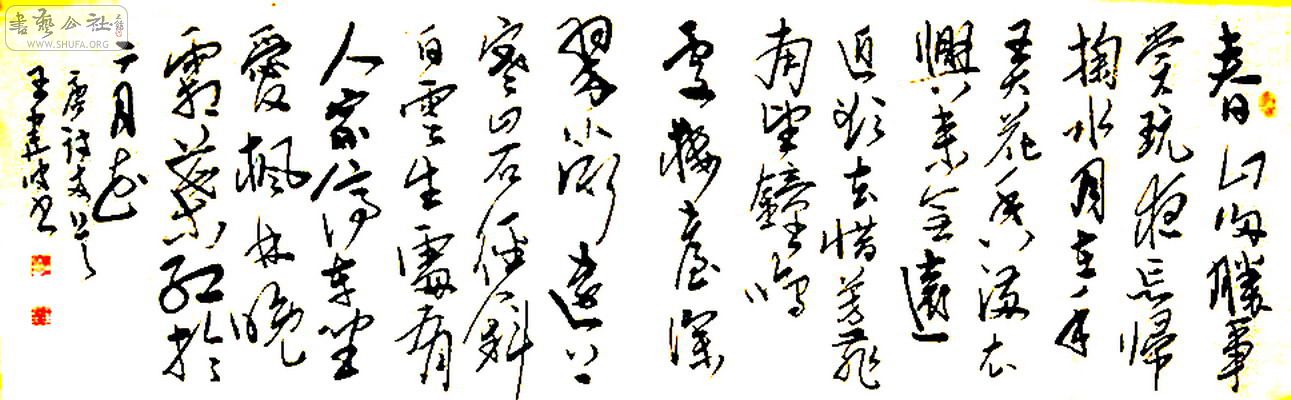 書藝公社
WWW.SHUFA.ORG
春山多勝事
賞玩夜忘歸
掬水月在手
弄花香滿衣
興来無遠
近欲去惜芳菲
南望鐘鳴
處樓臺深
翠微遠上
寒山石徑斜
白雲生處有
人家停車坐
愛楓林晚
霜葉紅於
二月花
唐詩
王建